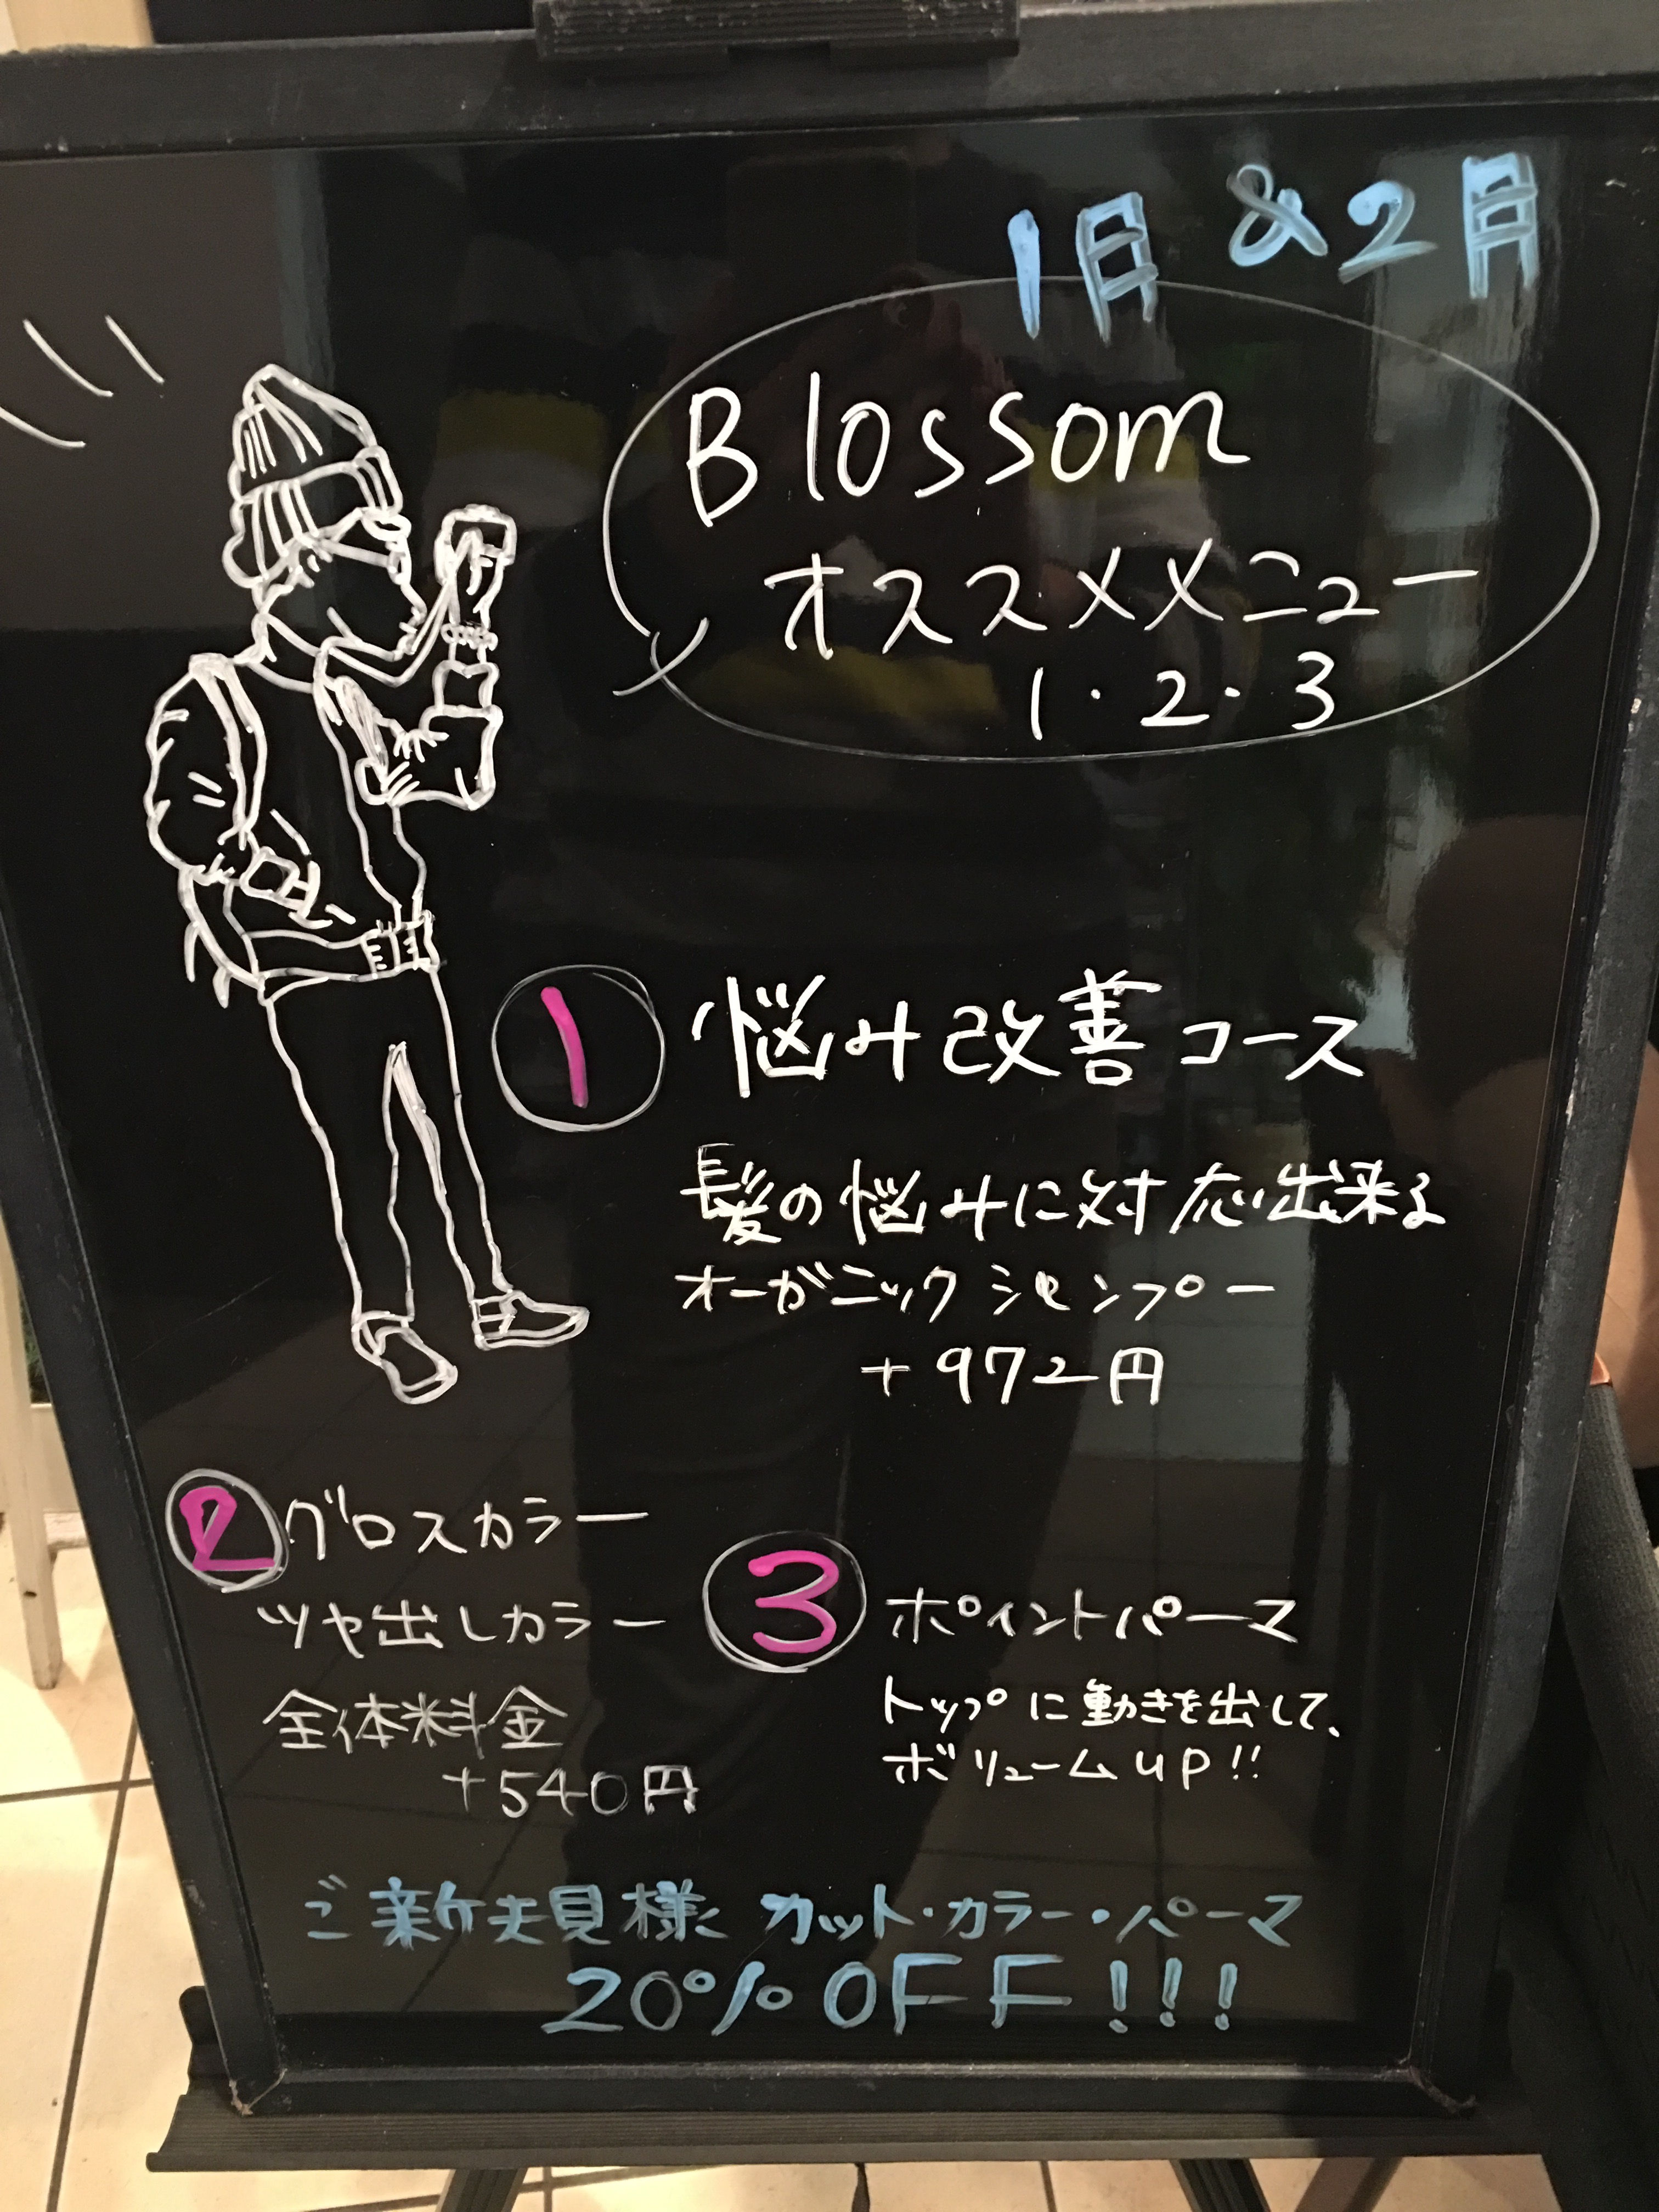 1月&2月
Blossom
オススメメニュー
1・2・3
1 悩み改善コース
髪の悩みに対応出来る
オーガニックシャンプー
+972円
2 グロスカラー
ツヤ出しカラー
全体料金
+540円
3 ポイントパーマ
トップに動きを出して、
ボリュームup!!
ご新規様 カット・カラー・パーマ
20%OFF!!!